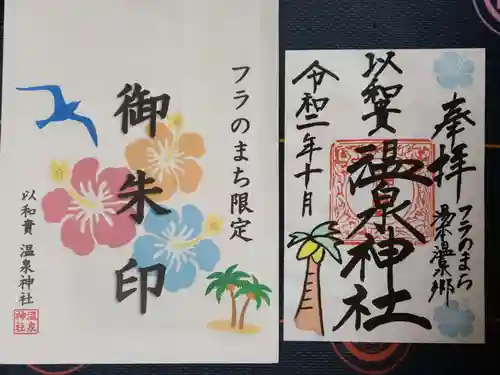 フラのまち限定
御朱印
以和貴 温泉神社
温泉
神社
奉拝
フラのまち
湯本温泉郷
以和貴
温泉神社
令和二年十月